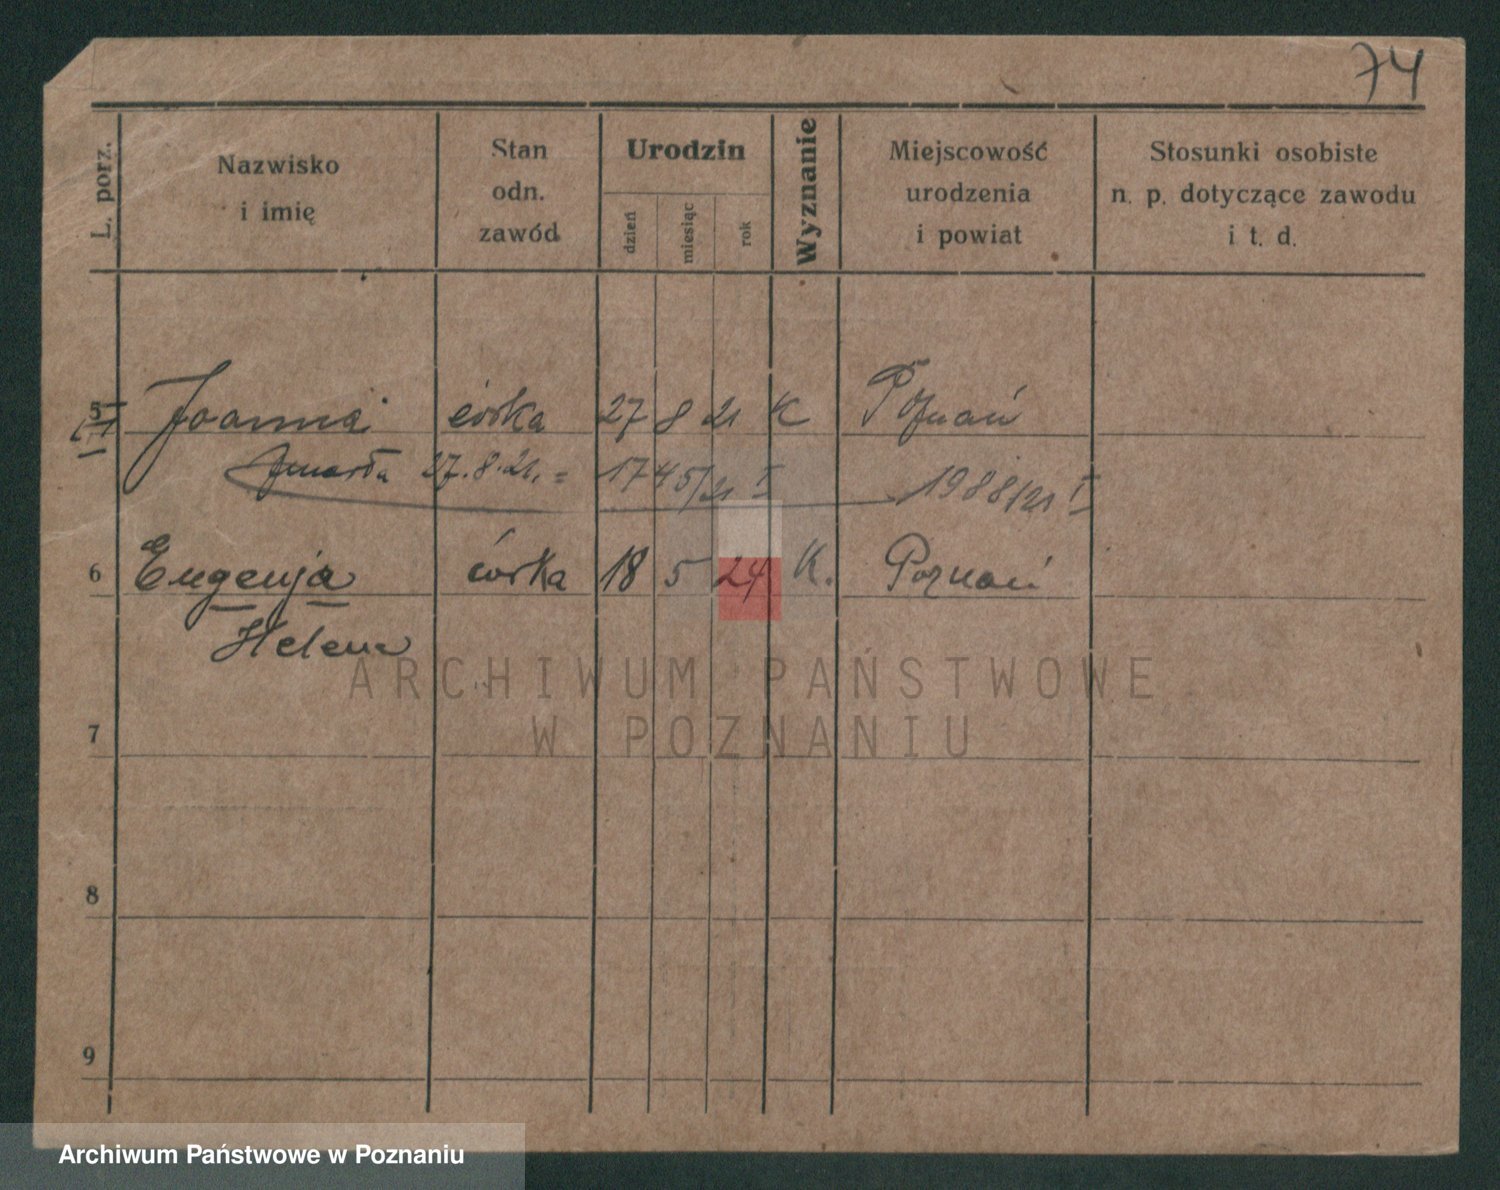 74
L. porz.
Nazwisko
i imię
Stan
odn.
zawód
Urodzin
dzień
miesiąc
rok
Wyznanie
Miejscowość
urodzenia
i powiat
Stosunki osobiste
n. p. dotyczące zawodu
i t. d.
5 Joanna córka 27 8 21 K Poznań
zmarła 27.8.21. = 1745/21 I 1988/21 I
6 Eugenja córka 18 5 24 K. Poznań
Helena
7
8
9
ARCHIWUM PAŃSTWOWE
W POZNANIU
Archiwum Państwowe w Poznaniu